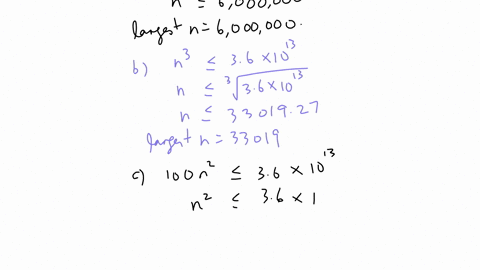 n ≤ 6,000,000
largest n = 6,000,000.
b) n³ ≤ 3.6 × 10¹³
n ≤ ³√3.6 × 10¹³
n ≤ 33019.27
largest n = 33019
c) 100n² ≤ 3.6 × 10¹³
n² ≤ 3.6 × 1